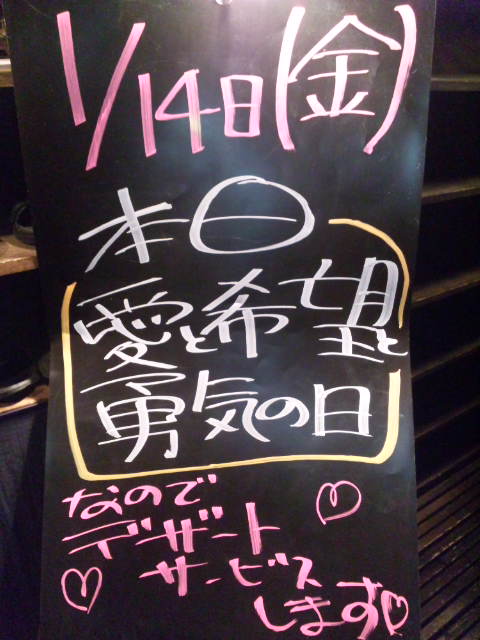 1/14日(金)
本日
愛と希望と
勇気の日
なので
デザート
サービス
します